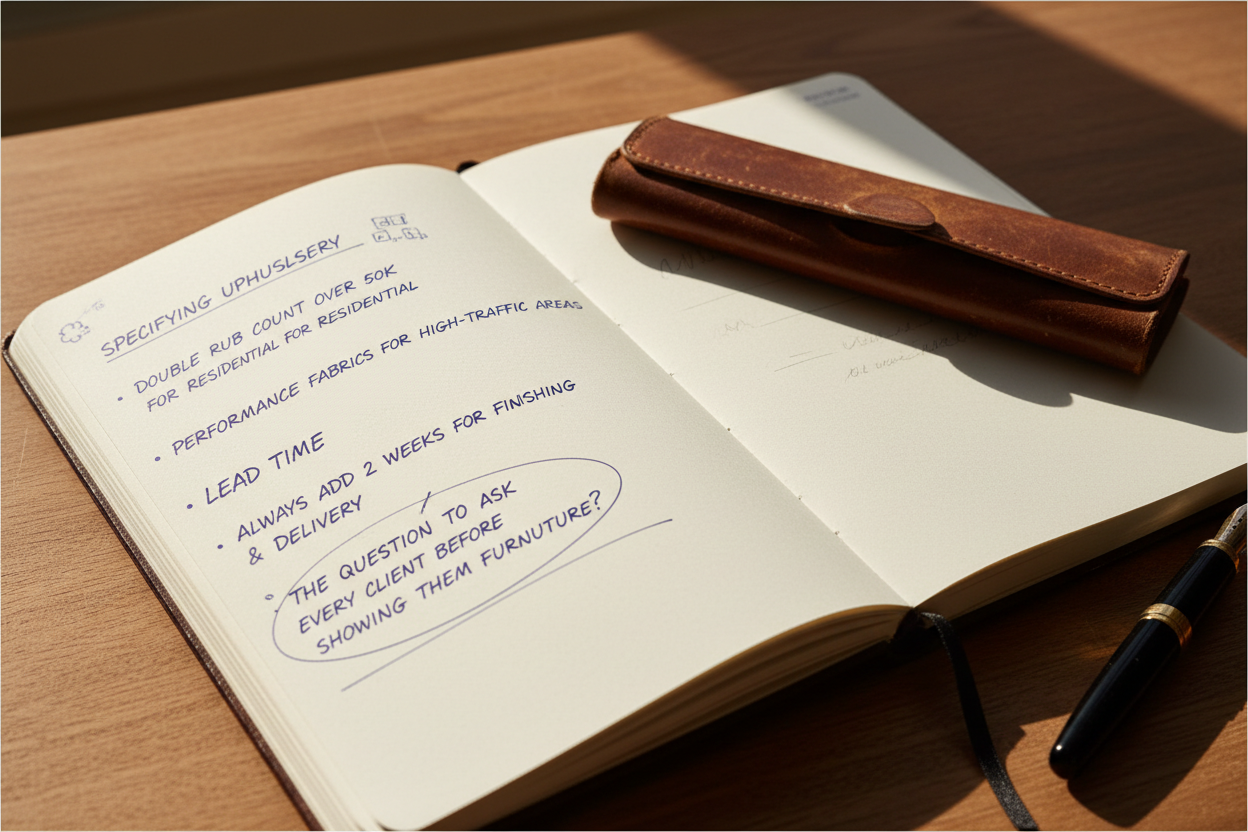 SPECIFYING UPHUSLSERY
• DOUBLE RUB COUNT OVER 50K
FOR RESIDENTIAL FOR RESIDENTIAL
• PERFORMANCE FABRICS FOR HIGH-TRAFFIC AREAS
• LEAD TIME
• ALWAYS ADD 2 WEEKS FOR FINISHING
& DELIVERY
• THE QUESTION TO ASK
EVERY CLIENT BEFORE
SHOWING THEM FURNUTURE?